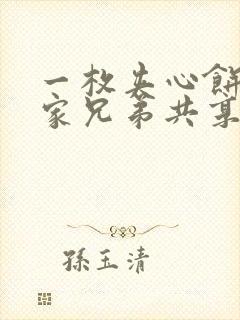 一枚夹心餅
家兄弟共
孫玉清